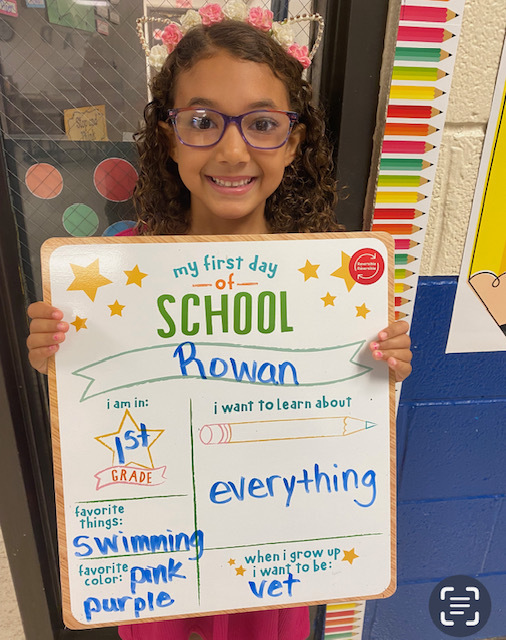 my first day
of
SCHOOL
Rowan
i am in:
1st
GRADE
i want to learn about
everything
favorite
things:
swimming
favorite
color: pink
purple
when i grow up
i want to be:
vet